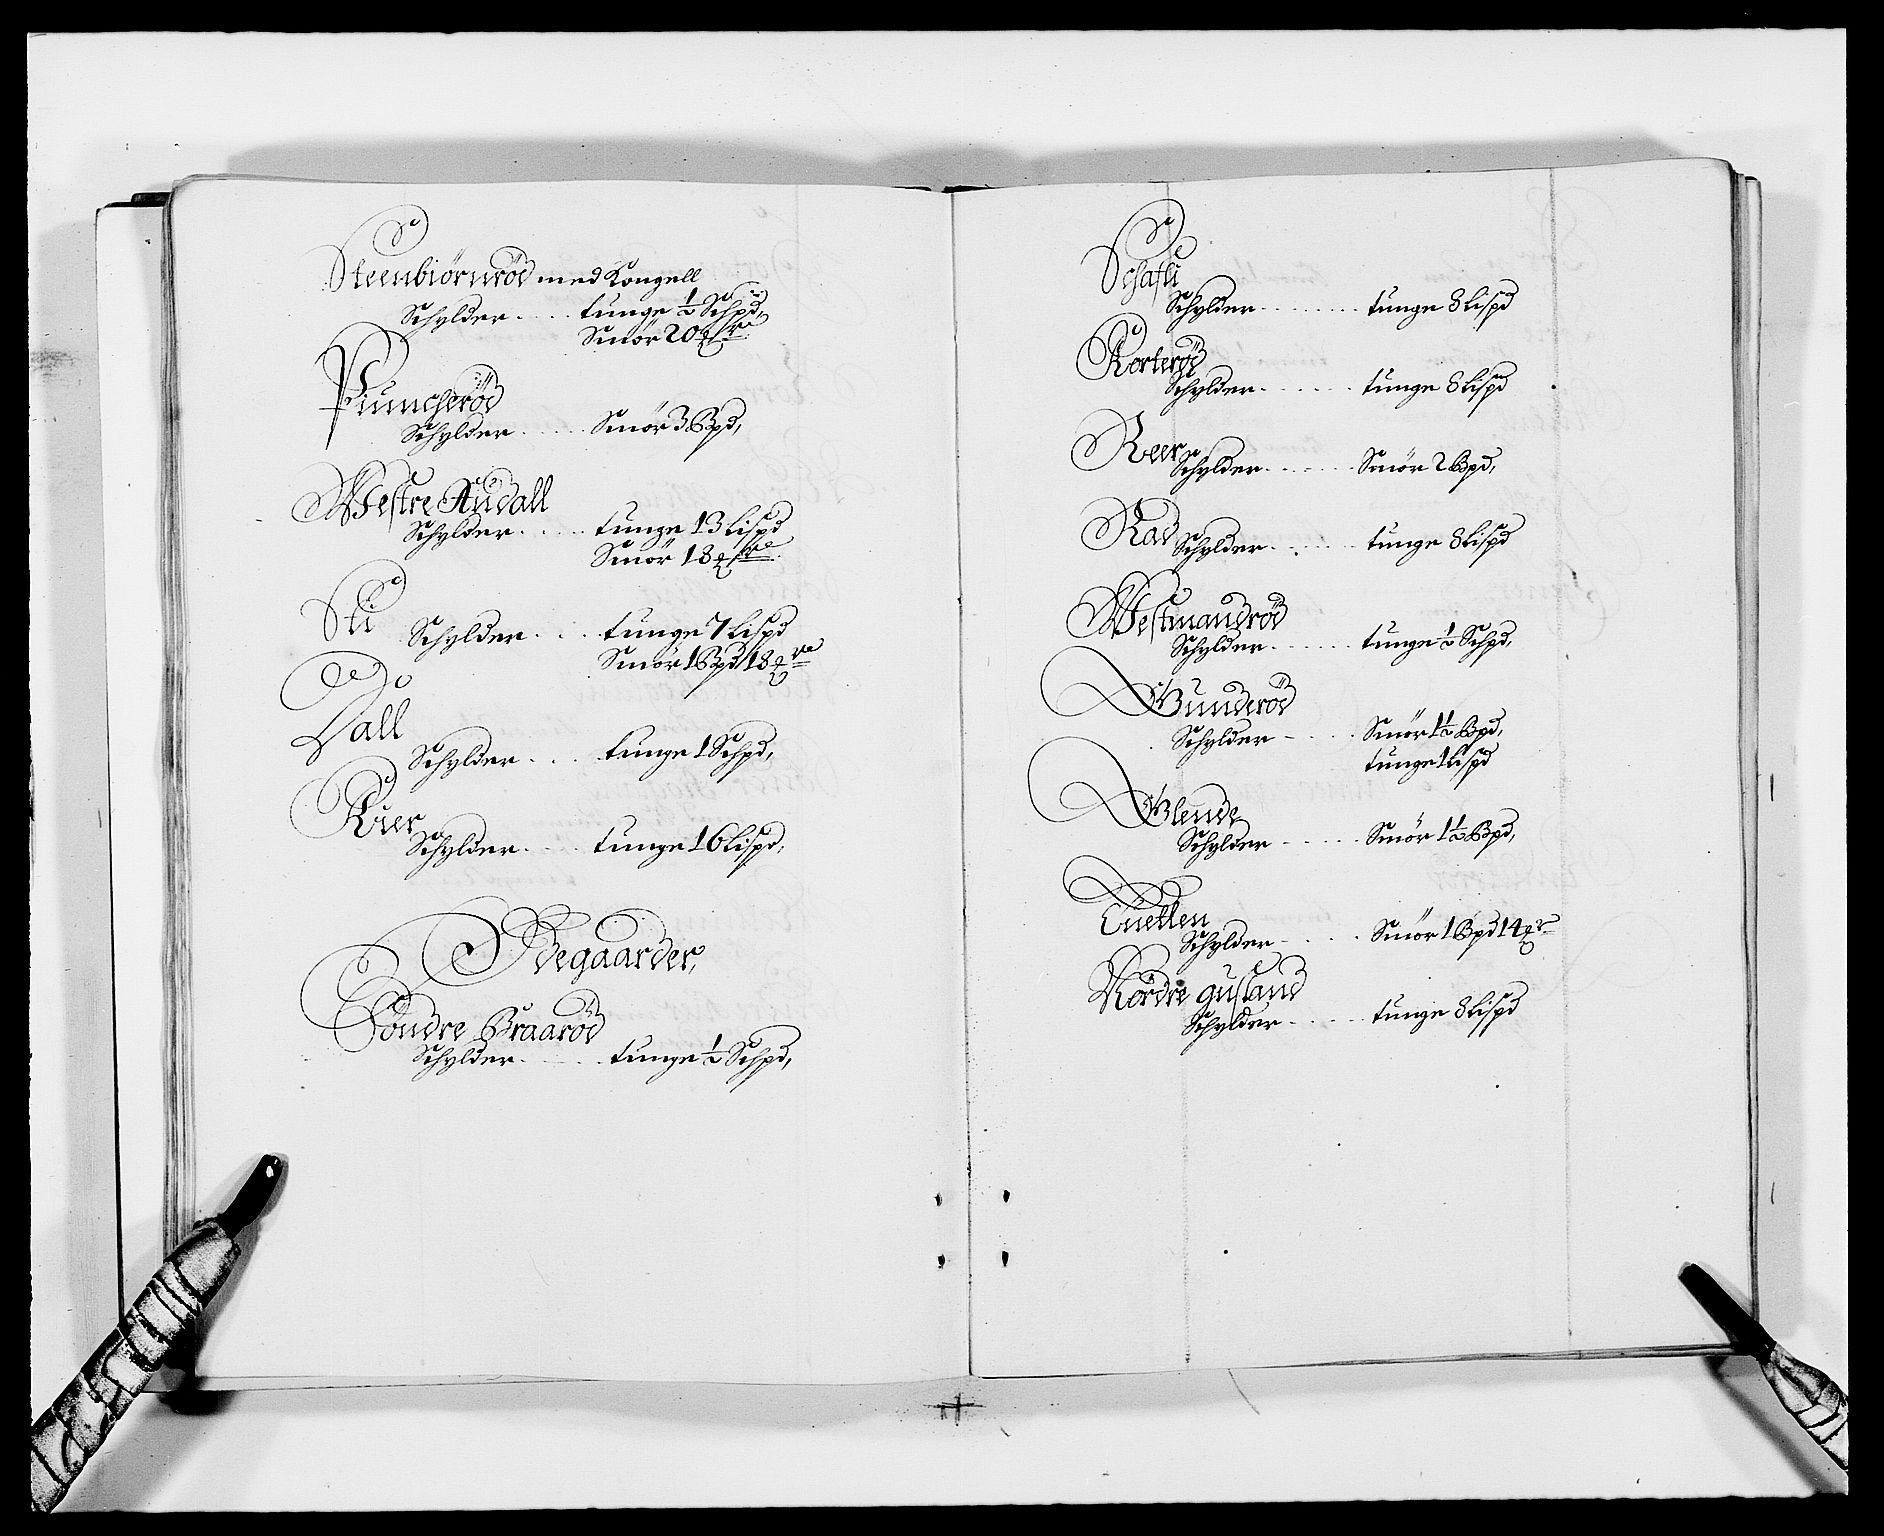 Steenbiörnröd med Kongell
Schylder ..... tunge ½ Schpd,
Smör 20 ℔
Schylder ..... Smör 3 Bpd,
Westre Audall
Schylder ..... tunge 13 Lispd
Smör 18 ℔
Sti
Schylder .... tunge 7 Lispd
Smör 1 Bpd 18 ℔
Dall
Schylder .... tunge 1 Schpd,
Kier
Schylder .... tunge 16 Lispd,
Ödegaarder,
Söndre Braaröd
Schylder ..... tunge ½ Schpd,
Schafli
Schylder ........ tunge 8 Lispd
Korteröd
Schylder ...... tunge 8 Lispd
Reer
Schylder ...... Smör 2 Bpd,
Rad
Schylder ...... tunge 8 Lispd
Westmandröd
Schylder ...... tunge ½ Schpd,
Gunderöd
Schylder ..... Smör 1½ Bpd,
tunge 1 Lispd
Glende
Schylder ..... Smör 1½ Bpd,
Tuetten
Schylder ..... Smör 1 Bpd 14 ℔
Nordre gusland
Schylder ..... tunge 8 Lispd